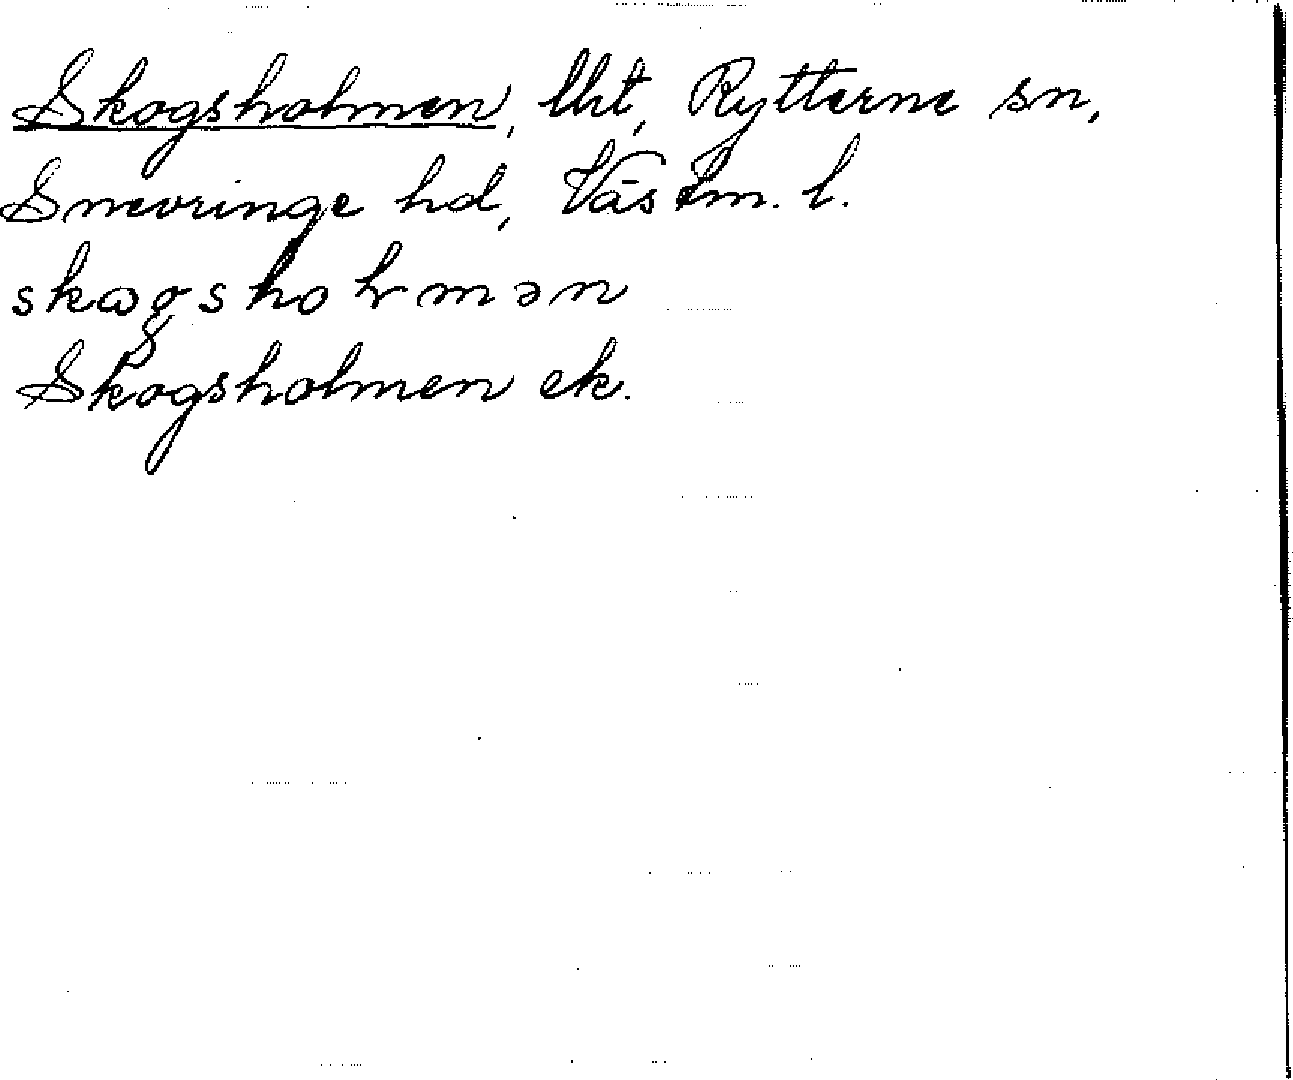 Skogsholmen, lht, Rytterne sn,
Snevringe hd, Västm. l.
Skogsholmen ek.